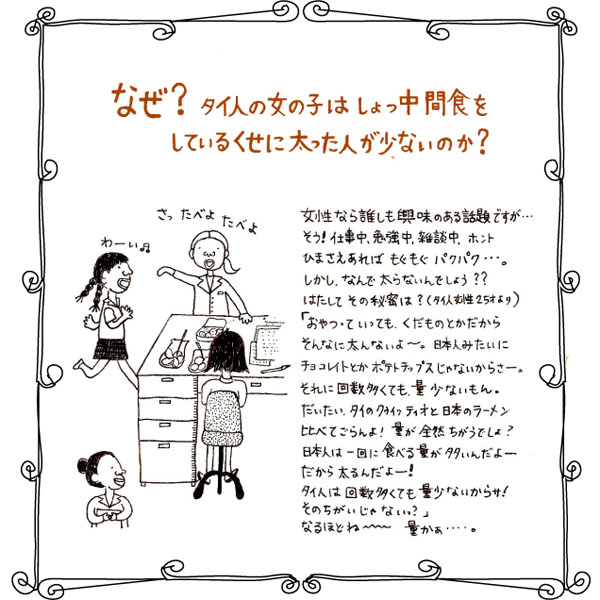 なぜ？ タイ人の女の子は しょっ中 間食を
しているくせに 太った人が少ないのか？
さっ たべよ たべよ
わーい♫
女性なら誰しも興味のある話題ですが…
そう！仕事中、勉強中、雑談中、ホント
ひまさえあれば もぐもぐ パクパク…。
しかし、なんで太らないんでしょう？？
はたして その秘密は？（タイ人女性25才より）
「おやつって いっても、くだものとかだから
そんなに太んないよ〜。日本人みたいに
チョコレイトとか ポテトチップスじゃないからさー。
それに回数多くても、量少ないもん。
だいたい、タイのクァイッティオと日本のラーメン
比べてごらんよ！ 量が全然ちがうでしょ？
日本人は一回に食べる量が多いんだよー
だから太るんだよー！
タイ人は回数多くても量少ないからサ！
そのちがいじゃないっ？」
なるほどね〜〜 量かぁ・・・・。